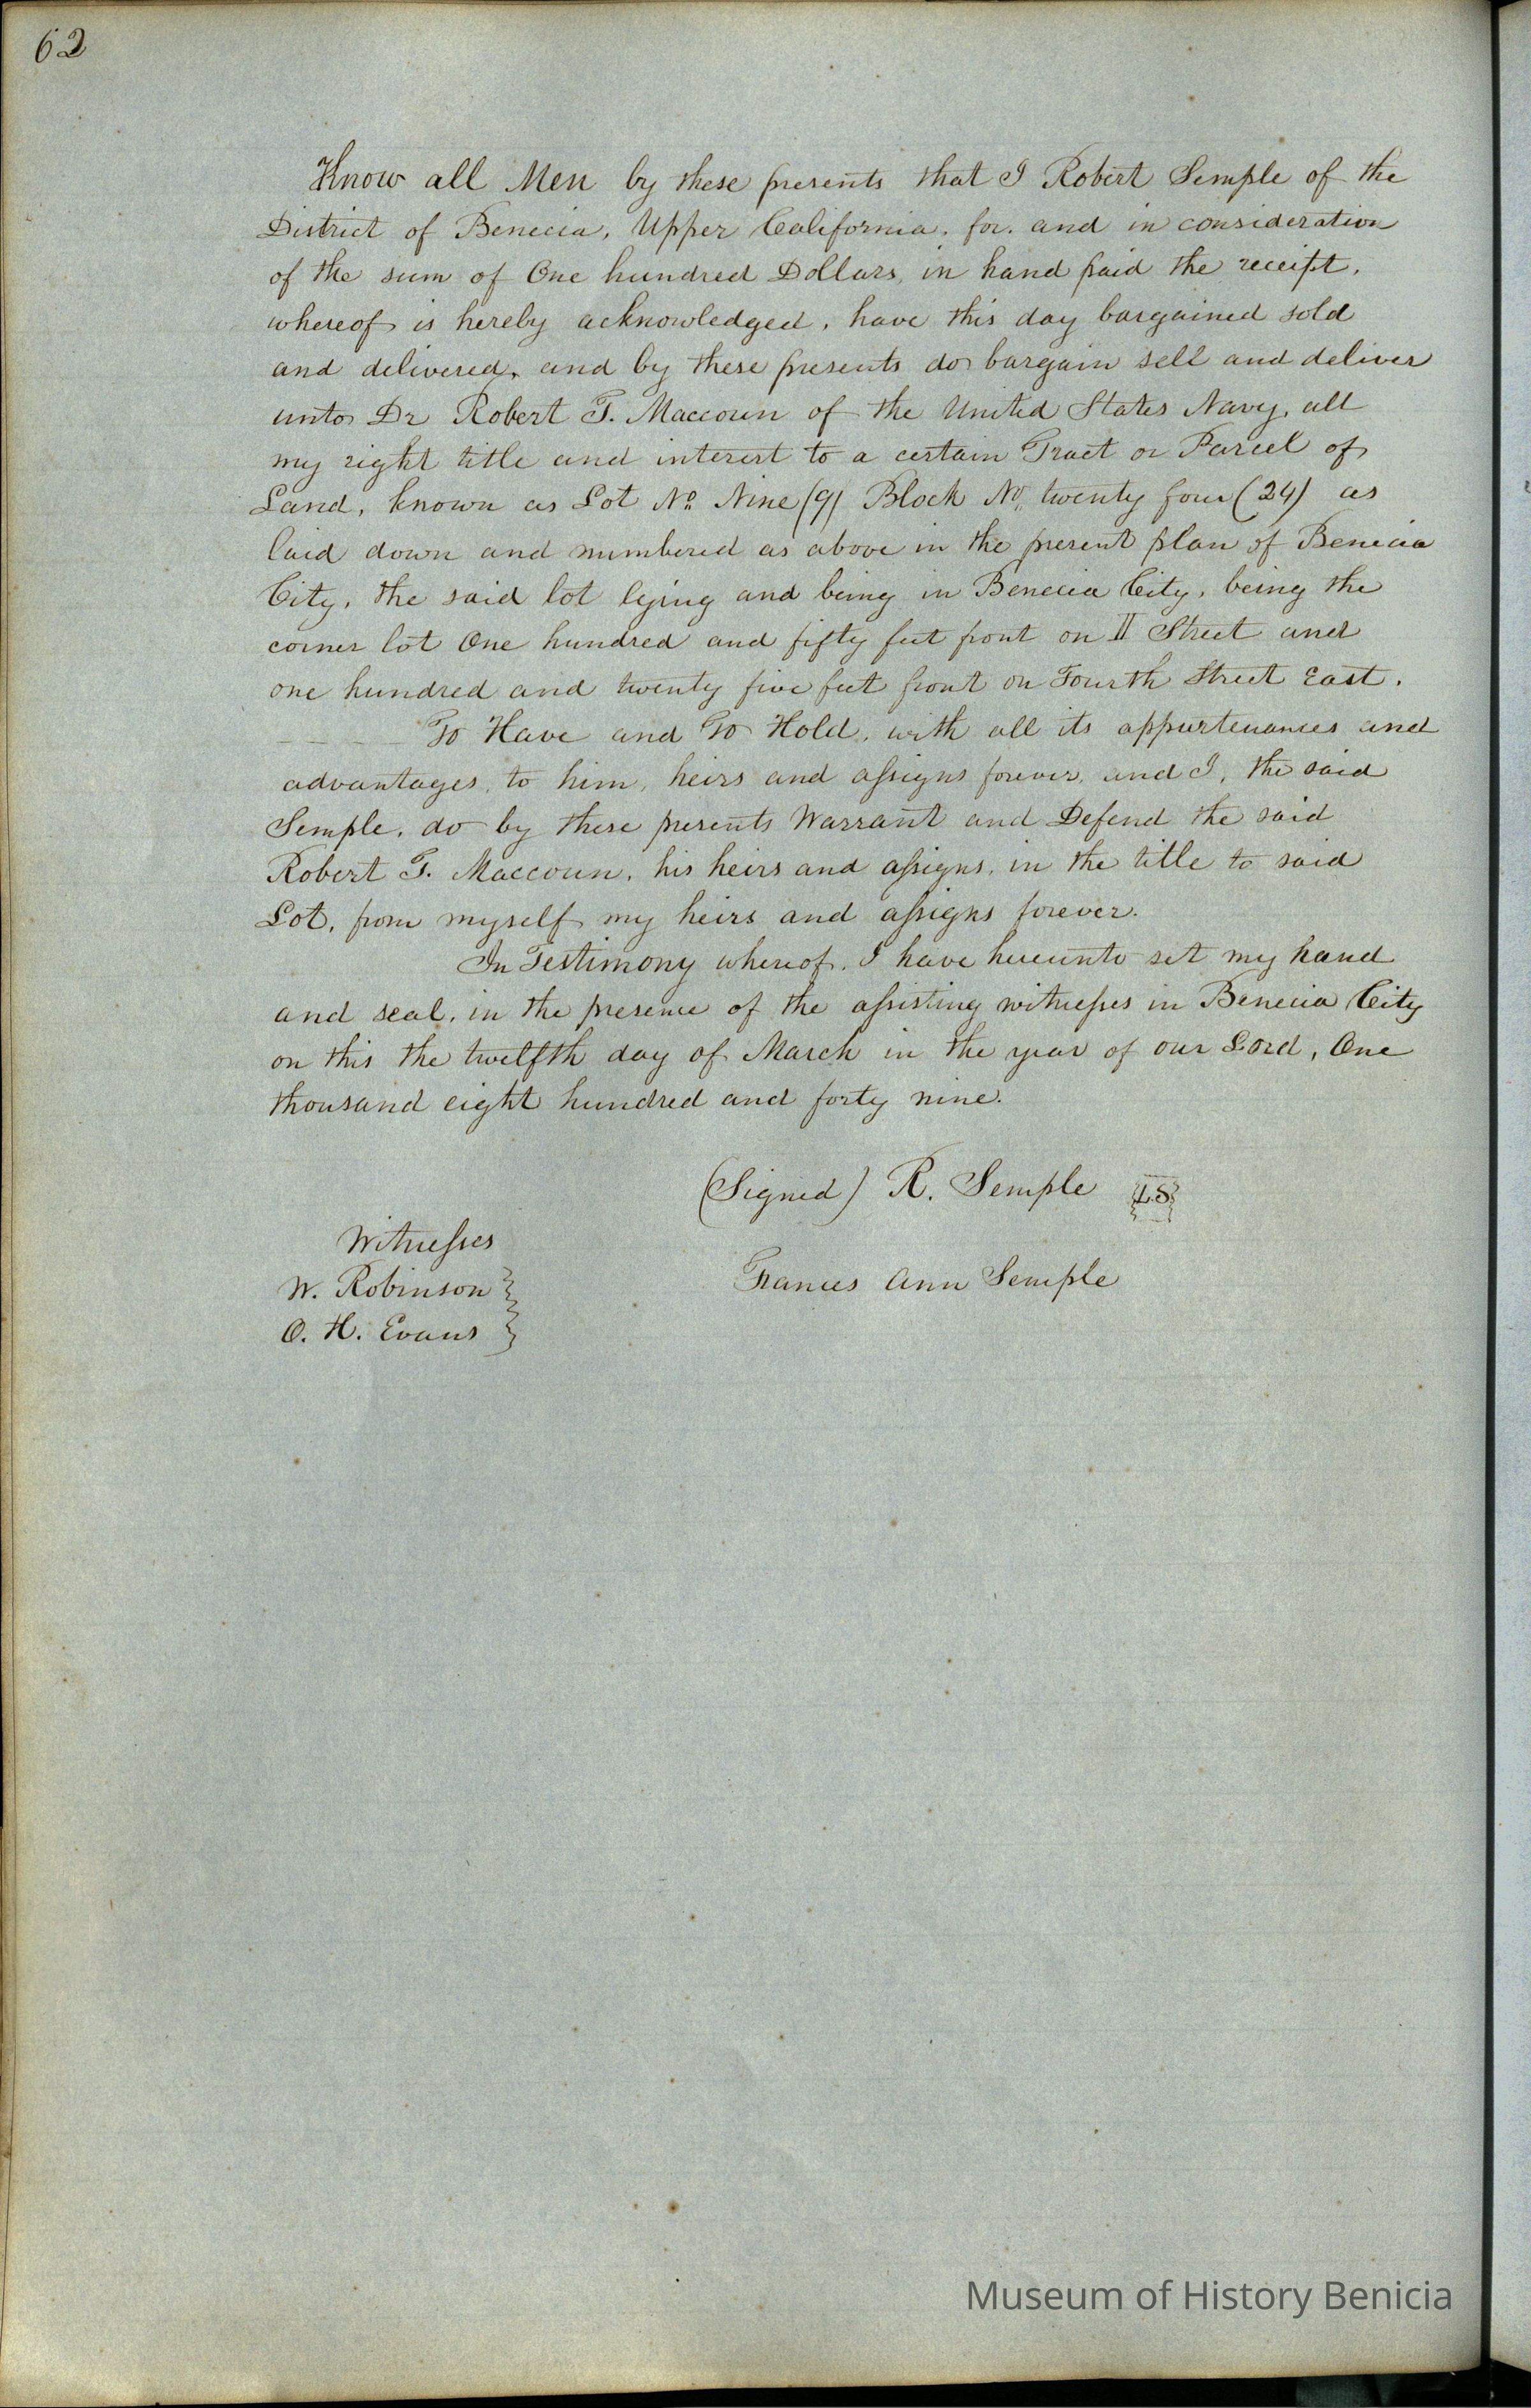 62
Know all Men by these presents that I Robert Semple of the
District of Benecia, Upper California, for, and in consideration
of the sum of One hundred Dollars, in hand paid the receipt,
whereof is hereby acknowledged, have this day bargained sold
and delivered, and by these presents do bargain sell and deliver
unto Dr Robert T. Maccoun of the United States Navy, all
my right title and interest to a certain Tract or Parcel of
Land, known as Lot No. Nine (9) Block No. twenty four (24) as
laid down and numbered as above in the present plan of Benecia
City, the said lot lying and being in Benecia City, being the
corner lot One hundred and fifty feet front on II Street and
one hundred and twenty five feet front on Fourth Street East.
To Have and To Hold, with all its appurtenances and
advantages, to him, heirs and assigns forever, and I, the said
Semple, do by these presents Warrant and Defend the said
Robert T. Maccoun, his heirs and assigns, in the title to said
Lot, from myself my heirs and assigns forever.
In Testimony whereof, I have hereunto set my hand
and seal, in the presence of the assisting witnesses in Benecia City
on this the twelfth day of March in the year of our Lord, One
thousand eight hundred and forty nine.
(Signed) R. Semple L.S.
Witnesses
Frances Ann Semple
W. Robinson
O. H. Evans
Museum of History Benicia